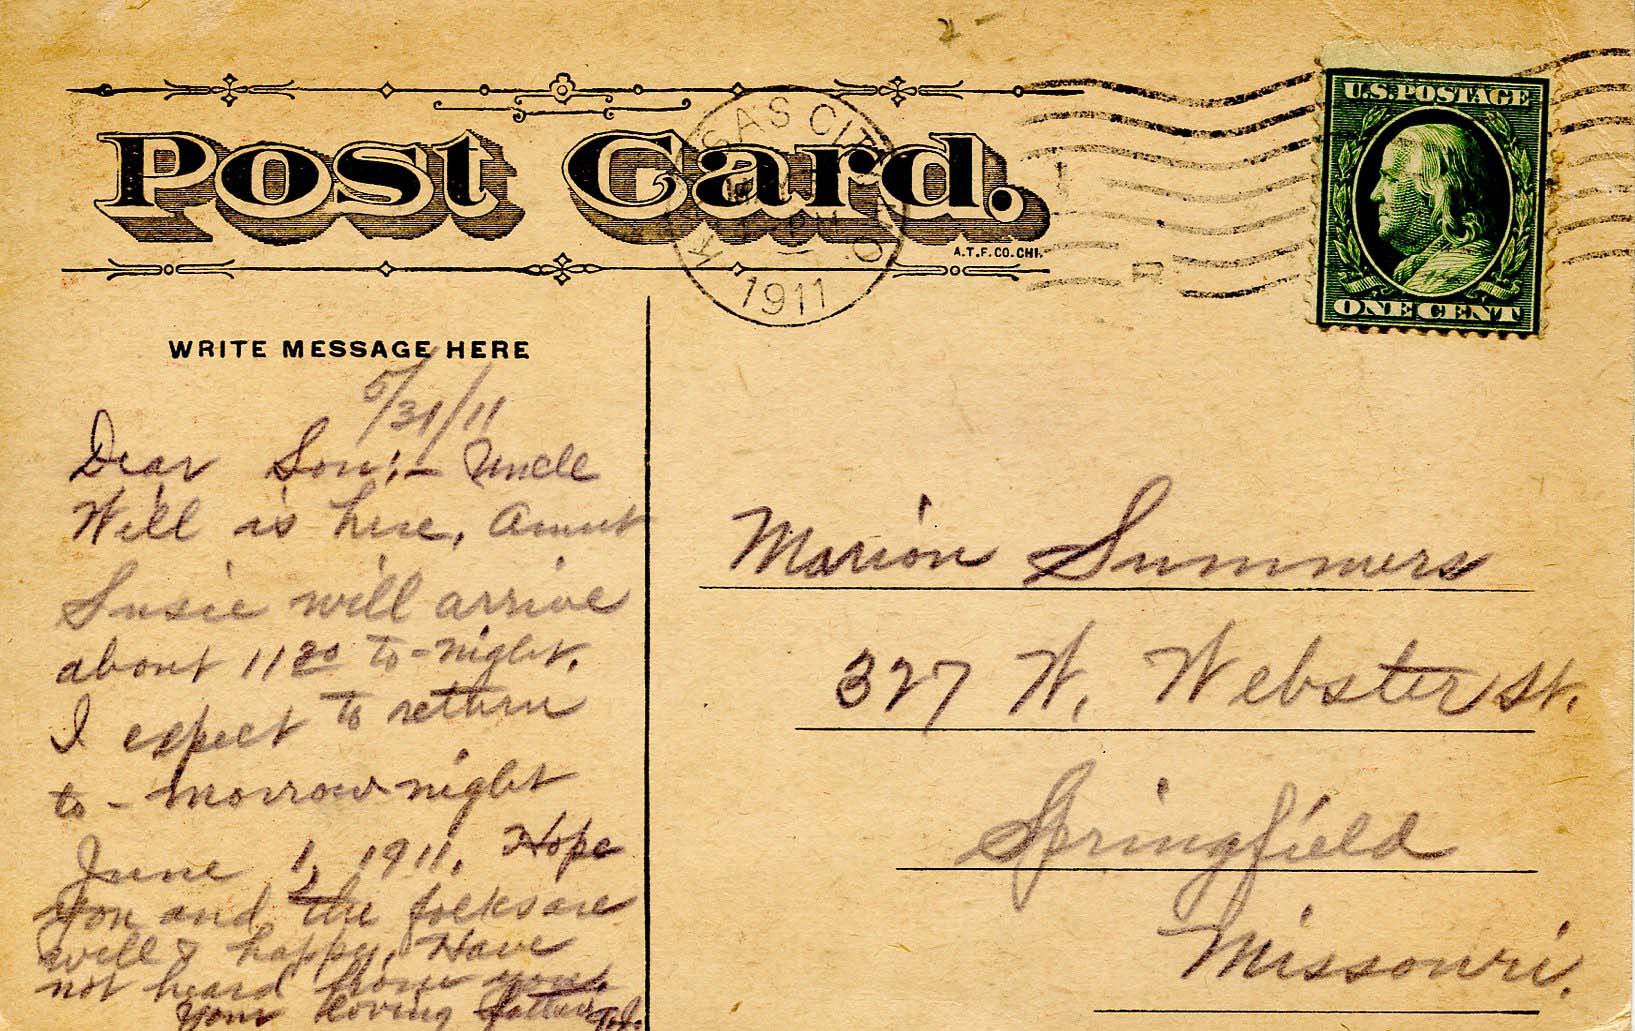 Post Card.
A.T.F.CO.CHI.
KANSAS CITY, MO.
1911
U.S. POSTAGE
ONE CENT
WRITE MESSAGE HERE
5/31/11
Dear Son:- Uncle
Will is here, Aunt
Susie will arrive
about 11 30 to-night.
I expect to return
to-morrow night
June 1, 1911. Hope
you and the folks are
well & happy. Have
not heard from you.
Your loving father
Marion Summers
327 W. Webster St.
Springfield
Missouri.